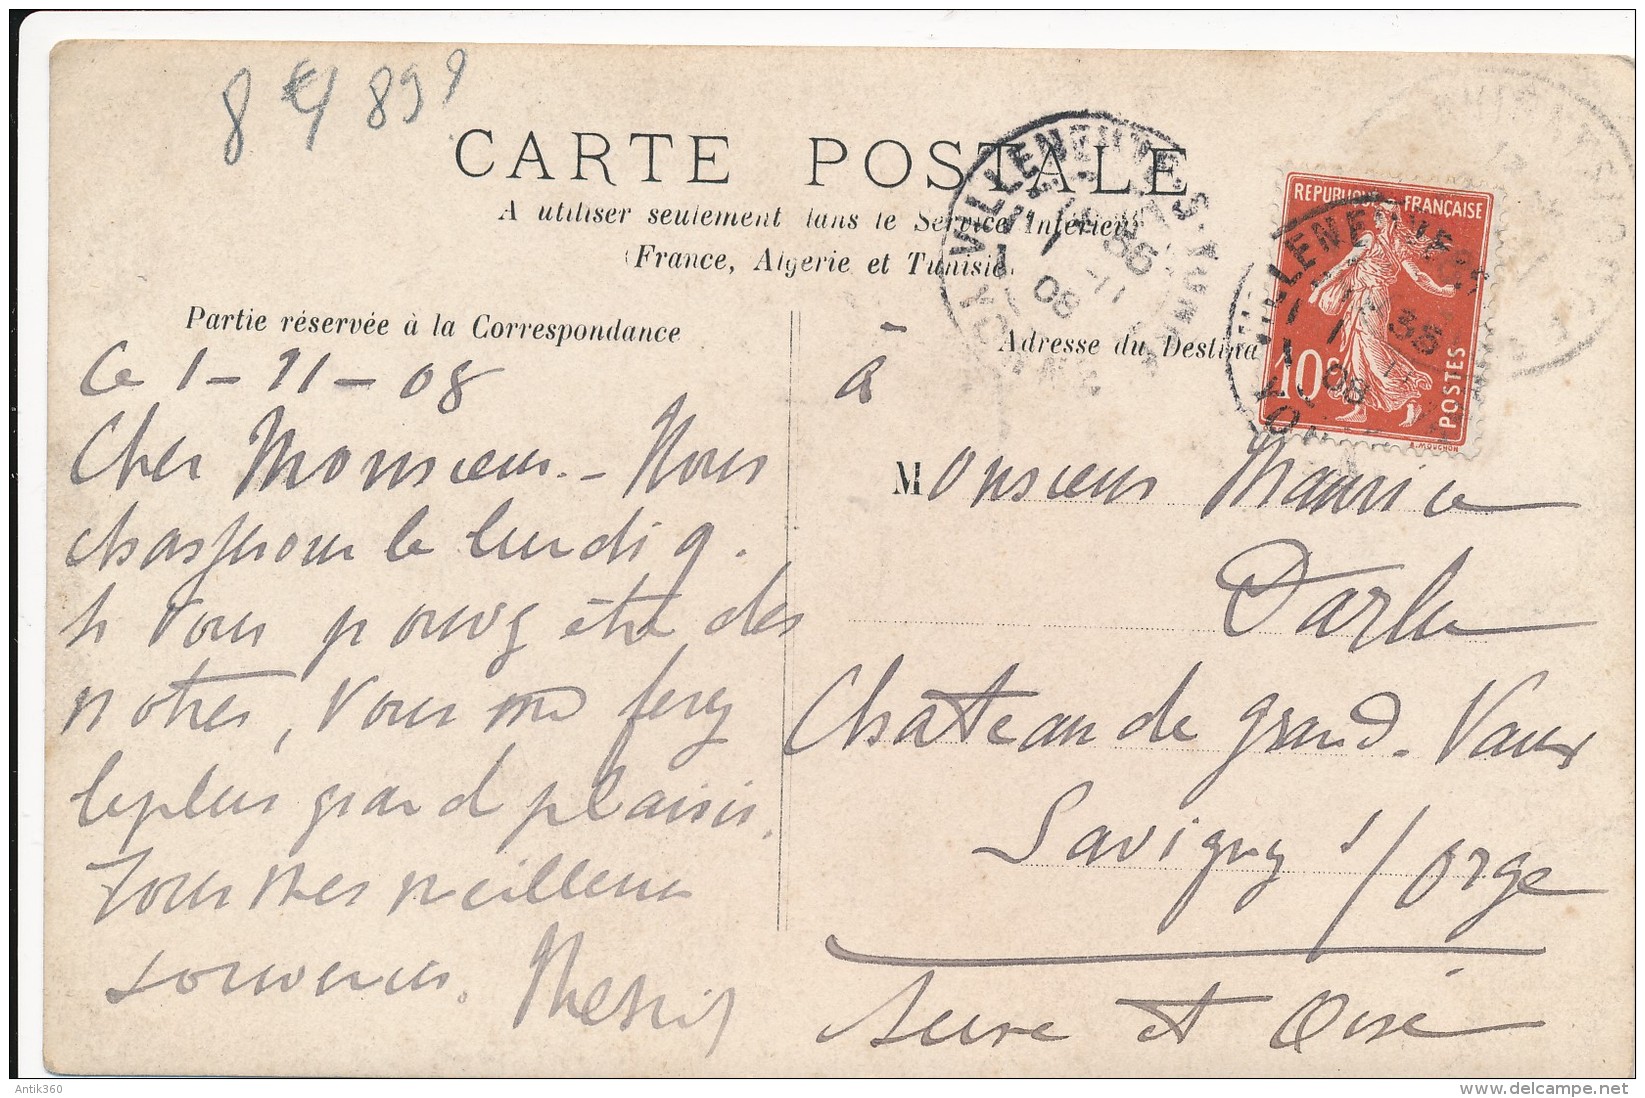 8 € 899
CARTE POSTALE
A utiliser seulement dans le Service Intérieur
(France, Algérie et Tunisie)
Partie réservée à la Correspondance
Adresse du Destina
REPUBLIQUE FRANÇAISE
10c
POSTES
E. MOUCHON
VILLENEUVE-S-YONNE
YONNE
1 11 08
VILLENEUVE
35
1 11 08
Ce 1-11-08
Cher Monsieur. - Nous
chasserons le lundi 9.
Si vous pouvez être des
notres, vous me ferez
le plus grand plaisir.
Tous mes meilleurs
souvenirs.
à
Monsieur Maurice
Darlu
Chateau de grand-Vaux
Savigny s/Orge
Seine et Oise
Antik360
www.delcampe.net